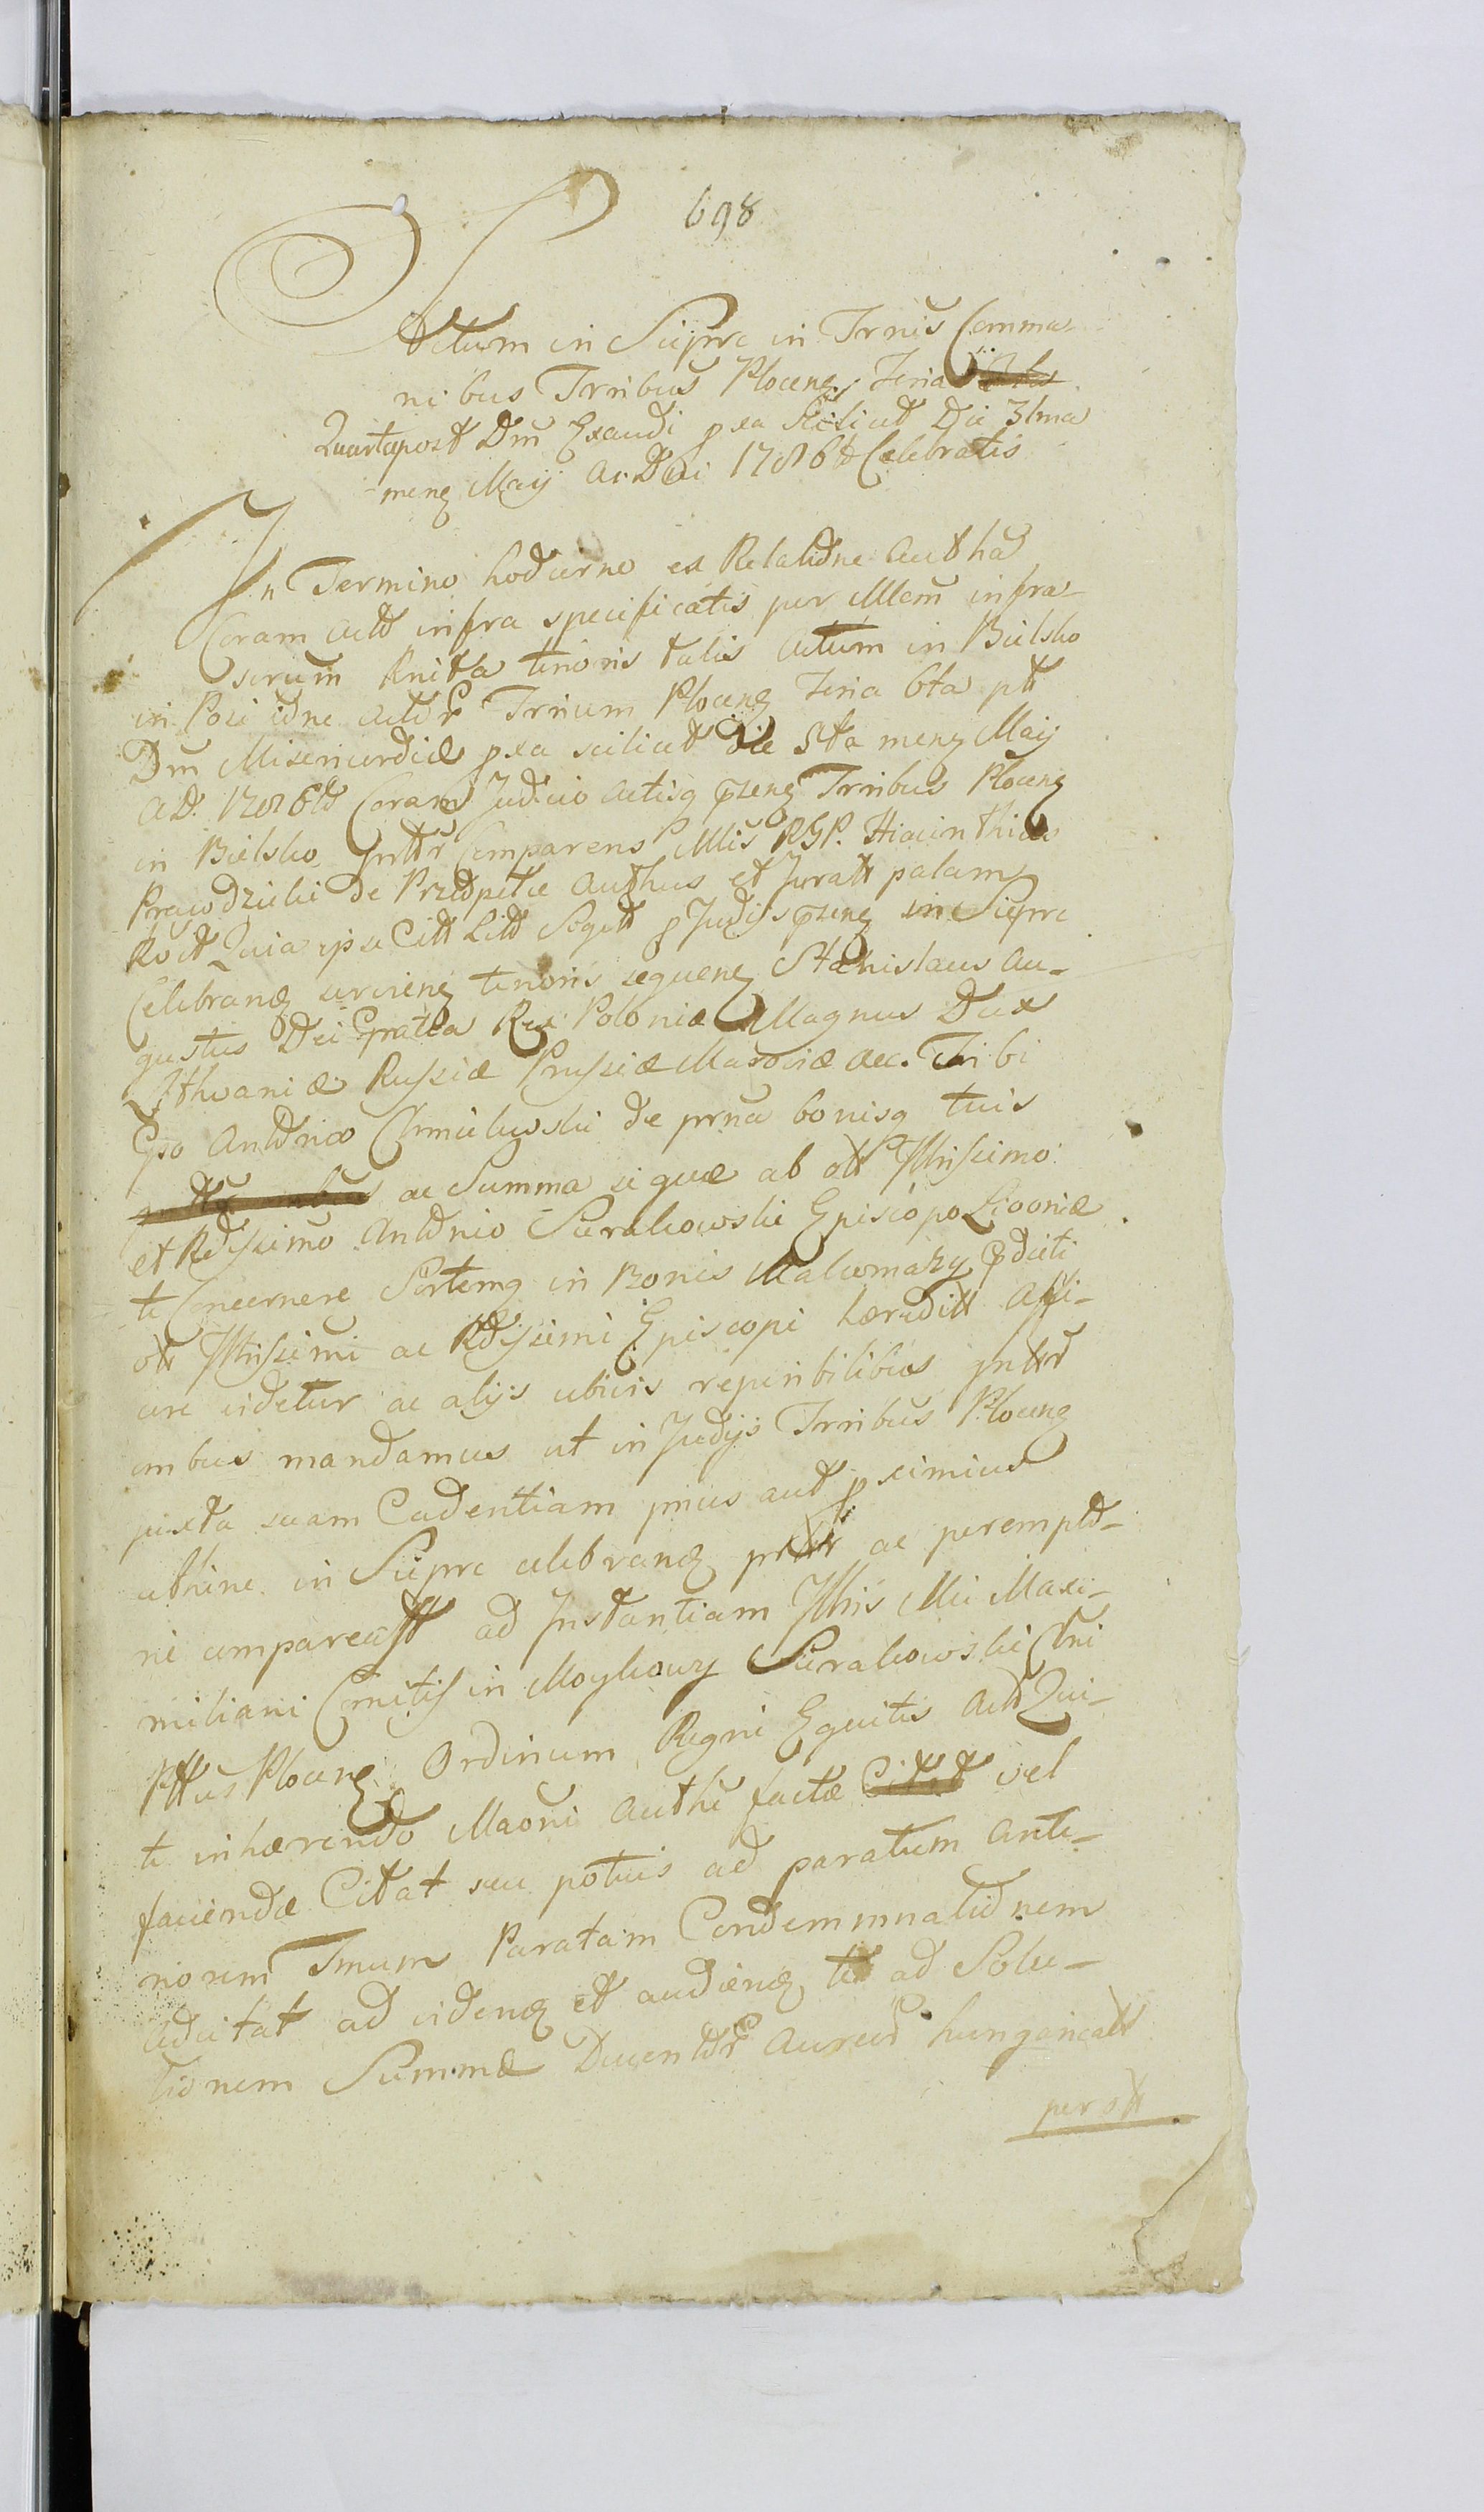 698
Actum in Sieprc in Trnis Commu
nibus Trribus Plocens: Feria
Quarta post Dm̃ Exaudi pxa scilicet Die 31ma
mens Maij A: Dni 1786to Celebratis
In Termino hodierno ex Relatione Autha
Coram Actis infra specificatis per Mem infra
scrum Knita tenoris talis Actum in Bielsko
in Posi idne Actor Trrium Plocens Feria 6ta ptt
Dm̃ Misericordiæ pxa scilicet die 5ta mens Maij
AD. 1786to Coram Judicio Actisq przens Trribus Plocens
in Bielsko Inttr Comparens Mtis RGP. Hiacinthius
Prawdzicki de Przedpełce Authus et Juratt palam
Rectt Quia ipse Citt Litt Sogett p Judijs przens in Sieprc
Celebrans serviens tenoris sequens Stanislaus Au-
gustus Dei Gratia Rex Poloniæ Magnus Dux
Lithvaniæ Russiæ Prussiæ Masoviæ &c. Tibi
Gso Antonio Chmielewski de prna bonisq tuis
ac Summa si quæ ab ott Illrissimo
et Rdissimo Antonio Sierakowski Episcopo Livoniæ
te Concernere Sortemq in Bonis Maliomazy pdicti
ott Illrissimi ac Rdissimi Episcopi hæreditt affi-
cere videtur ac alijs ubivis reperibilibus gnttr
ombus mandamus ut in Judijs Trribus Plocens
juxta suam Cadentiam prius aut p ximius
abhinc in Sieprc celebrans prttr ac perempto-
rie compareastt ad Instantiam Illris Mci Maxi-
miliani Comitis in Moykowy Sierakowski Clni
Pttus Plocens Ordinum Regni Equitis Actt Qui-
te inhærendo Maoni Authe factæ vel
faciendæ Citat seu potius ad paratum Ante-
riorem Trnum Paratam Condemnnationem
adcitat ad videns et audiens te ad Solu-
tionem Summæ Ducentor Aureor hungaricatt
per ott